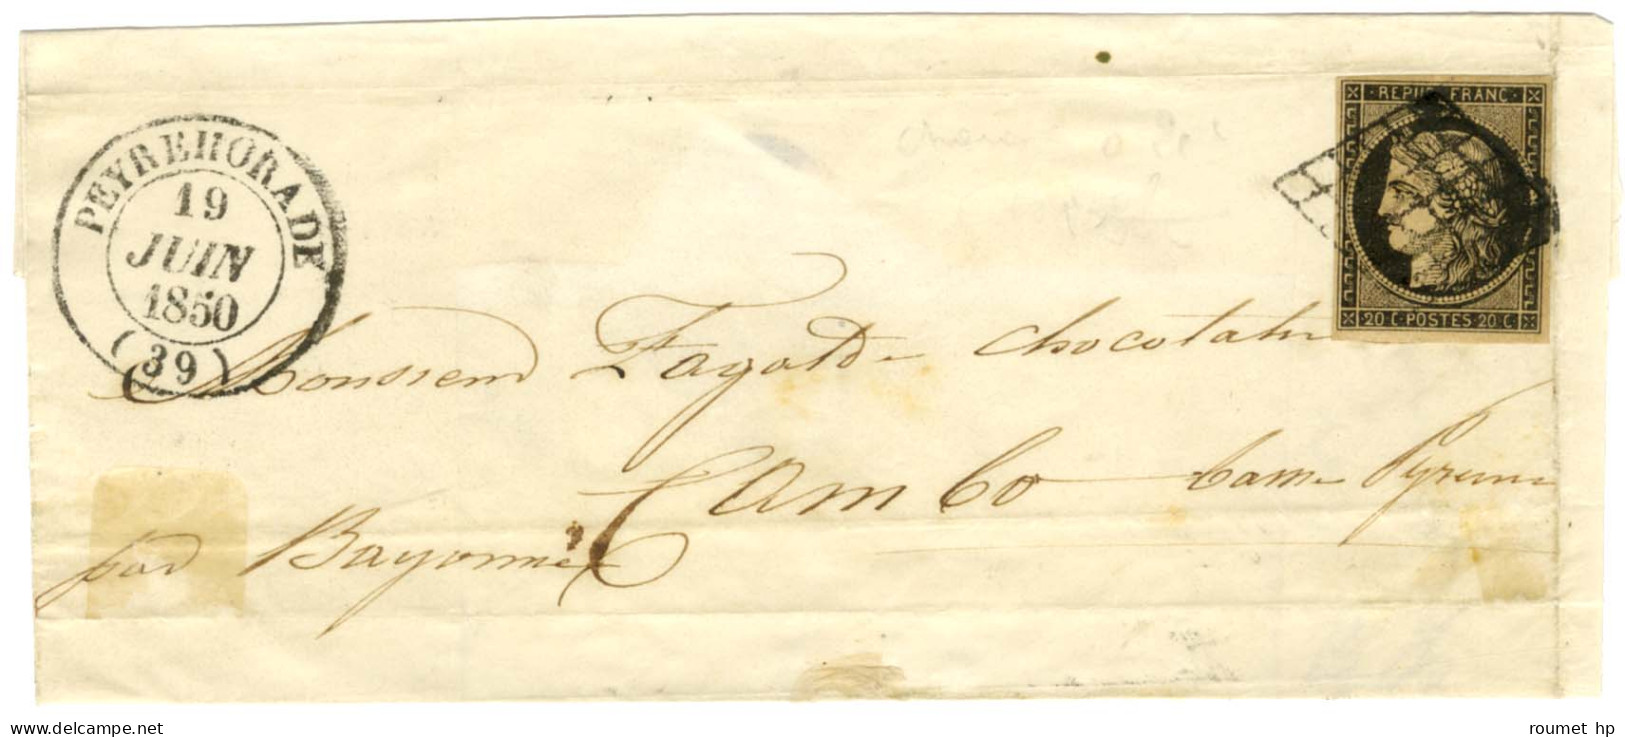 PEYREHORADE
19
JUIN
1850
(39)
REPUB. FRANC.
20 C. POSTES 20 C.
Monsieur Fagalde chocolatier
Cambo basses Pyrénées
par Bayonne
www.delcampe.net
roumet hp